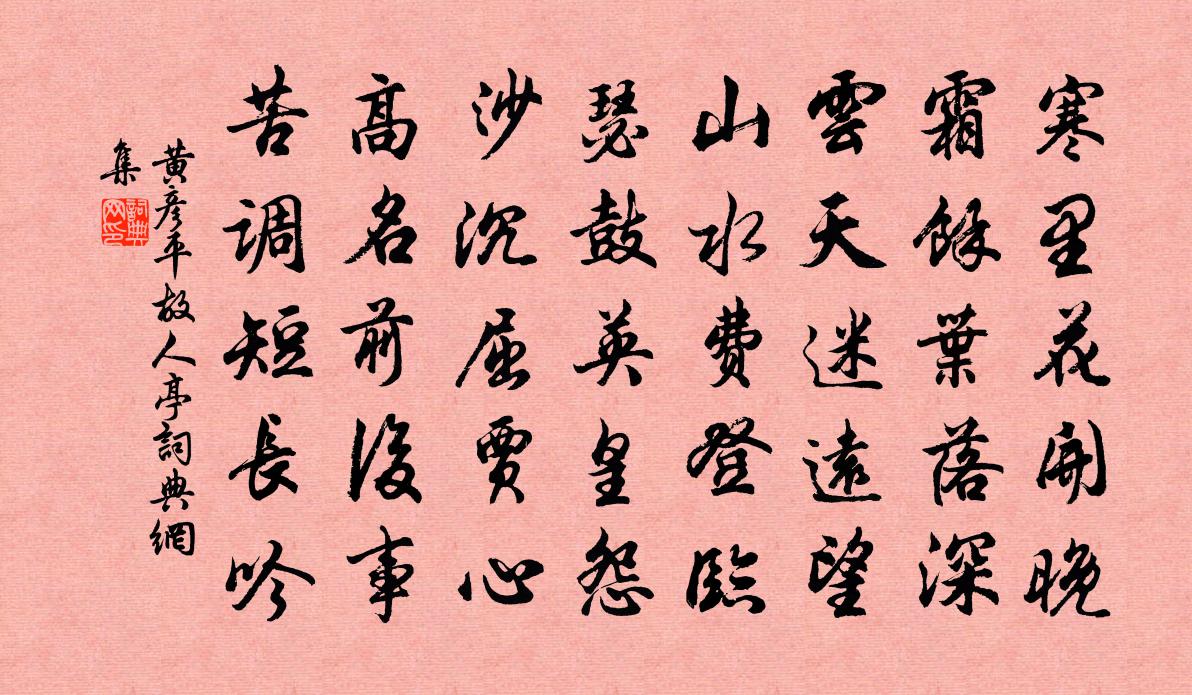 寒里花開晚
霜餘葉落深
雲天迷遠望
山水費登臨
瑟鼓英皇怨
沙沉屈賈心
高名前後事
苦調短長吟
黃彦平故人亭詞典網
集
詞典
网印